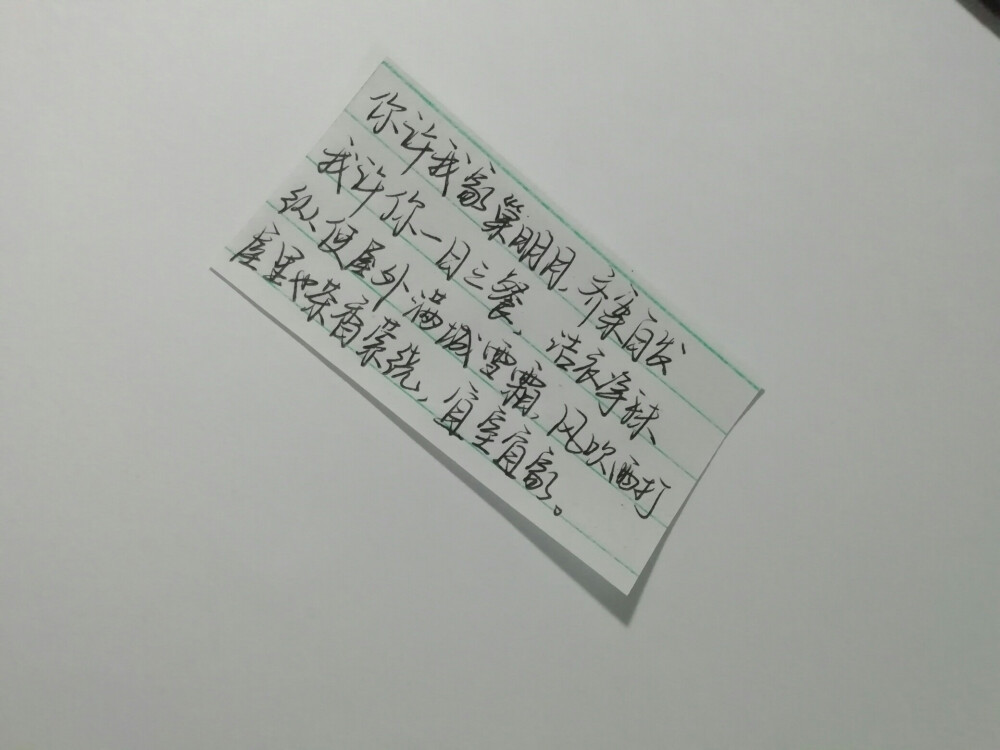 你许我家巢明月,齐案白发
我许你一日三餐,洁衣净袜
纵使屋外满城雪霜,风吹雨打
屋里也茶香萦绕,宜室宜家。